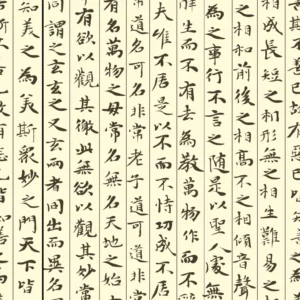 相成長短之相形無之相生難易之
之相和前後之相高不之相傾音聲
為之事行不言之隨是以聖人處無
生而不有去為教萬物作而不
夫唯不居是以不而不恃功成不居
常道名可名非常老子道可道非常
有名萬物之母常名無名天地之始
有欲以觀其徼此無欲以觀其妙常
同謂之玄玄之又玄兩者同出而異名
知美之為美斯眾妙之門天下皆